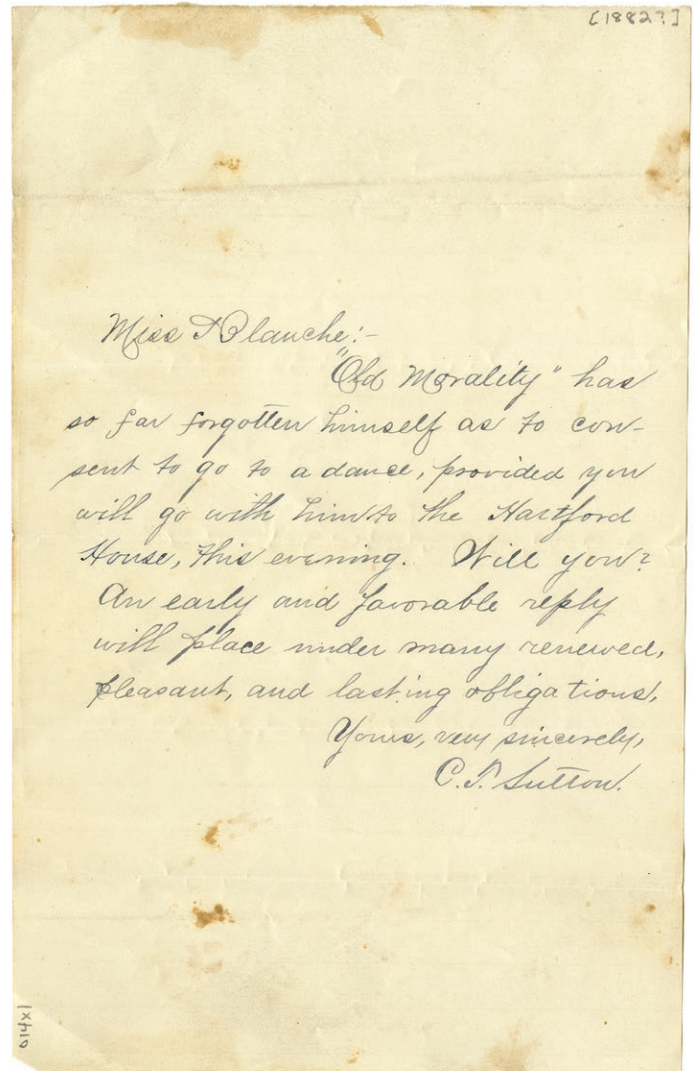 [1882?]
Miss Blanche:-
"Old Morality" has
so far forgotten himself as to con-
sent to go to a dance, provided you
will go with him to the Hartford
House, this evening. Will you?
An early and favorable reply
will place under many renewed,
pleasant, and lasting obligations,
Yours, very sincerely,
C. T. Sutton.